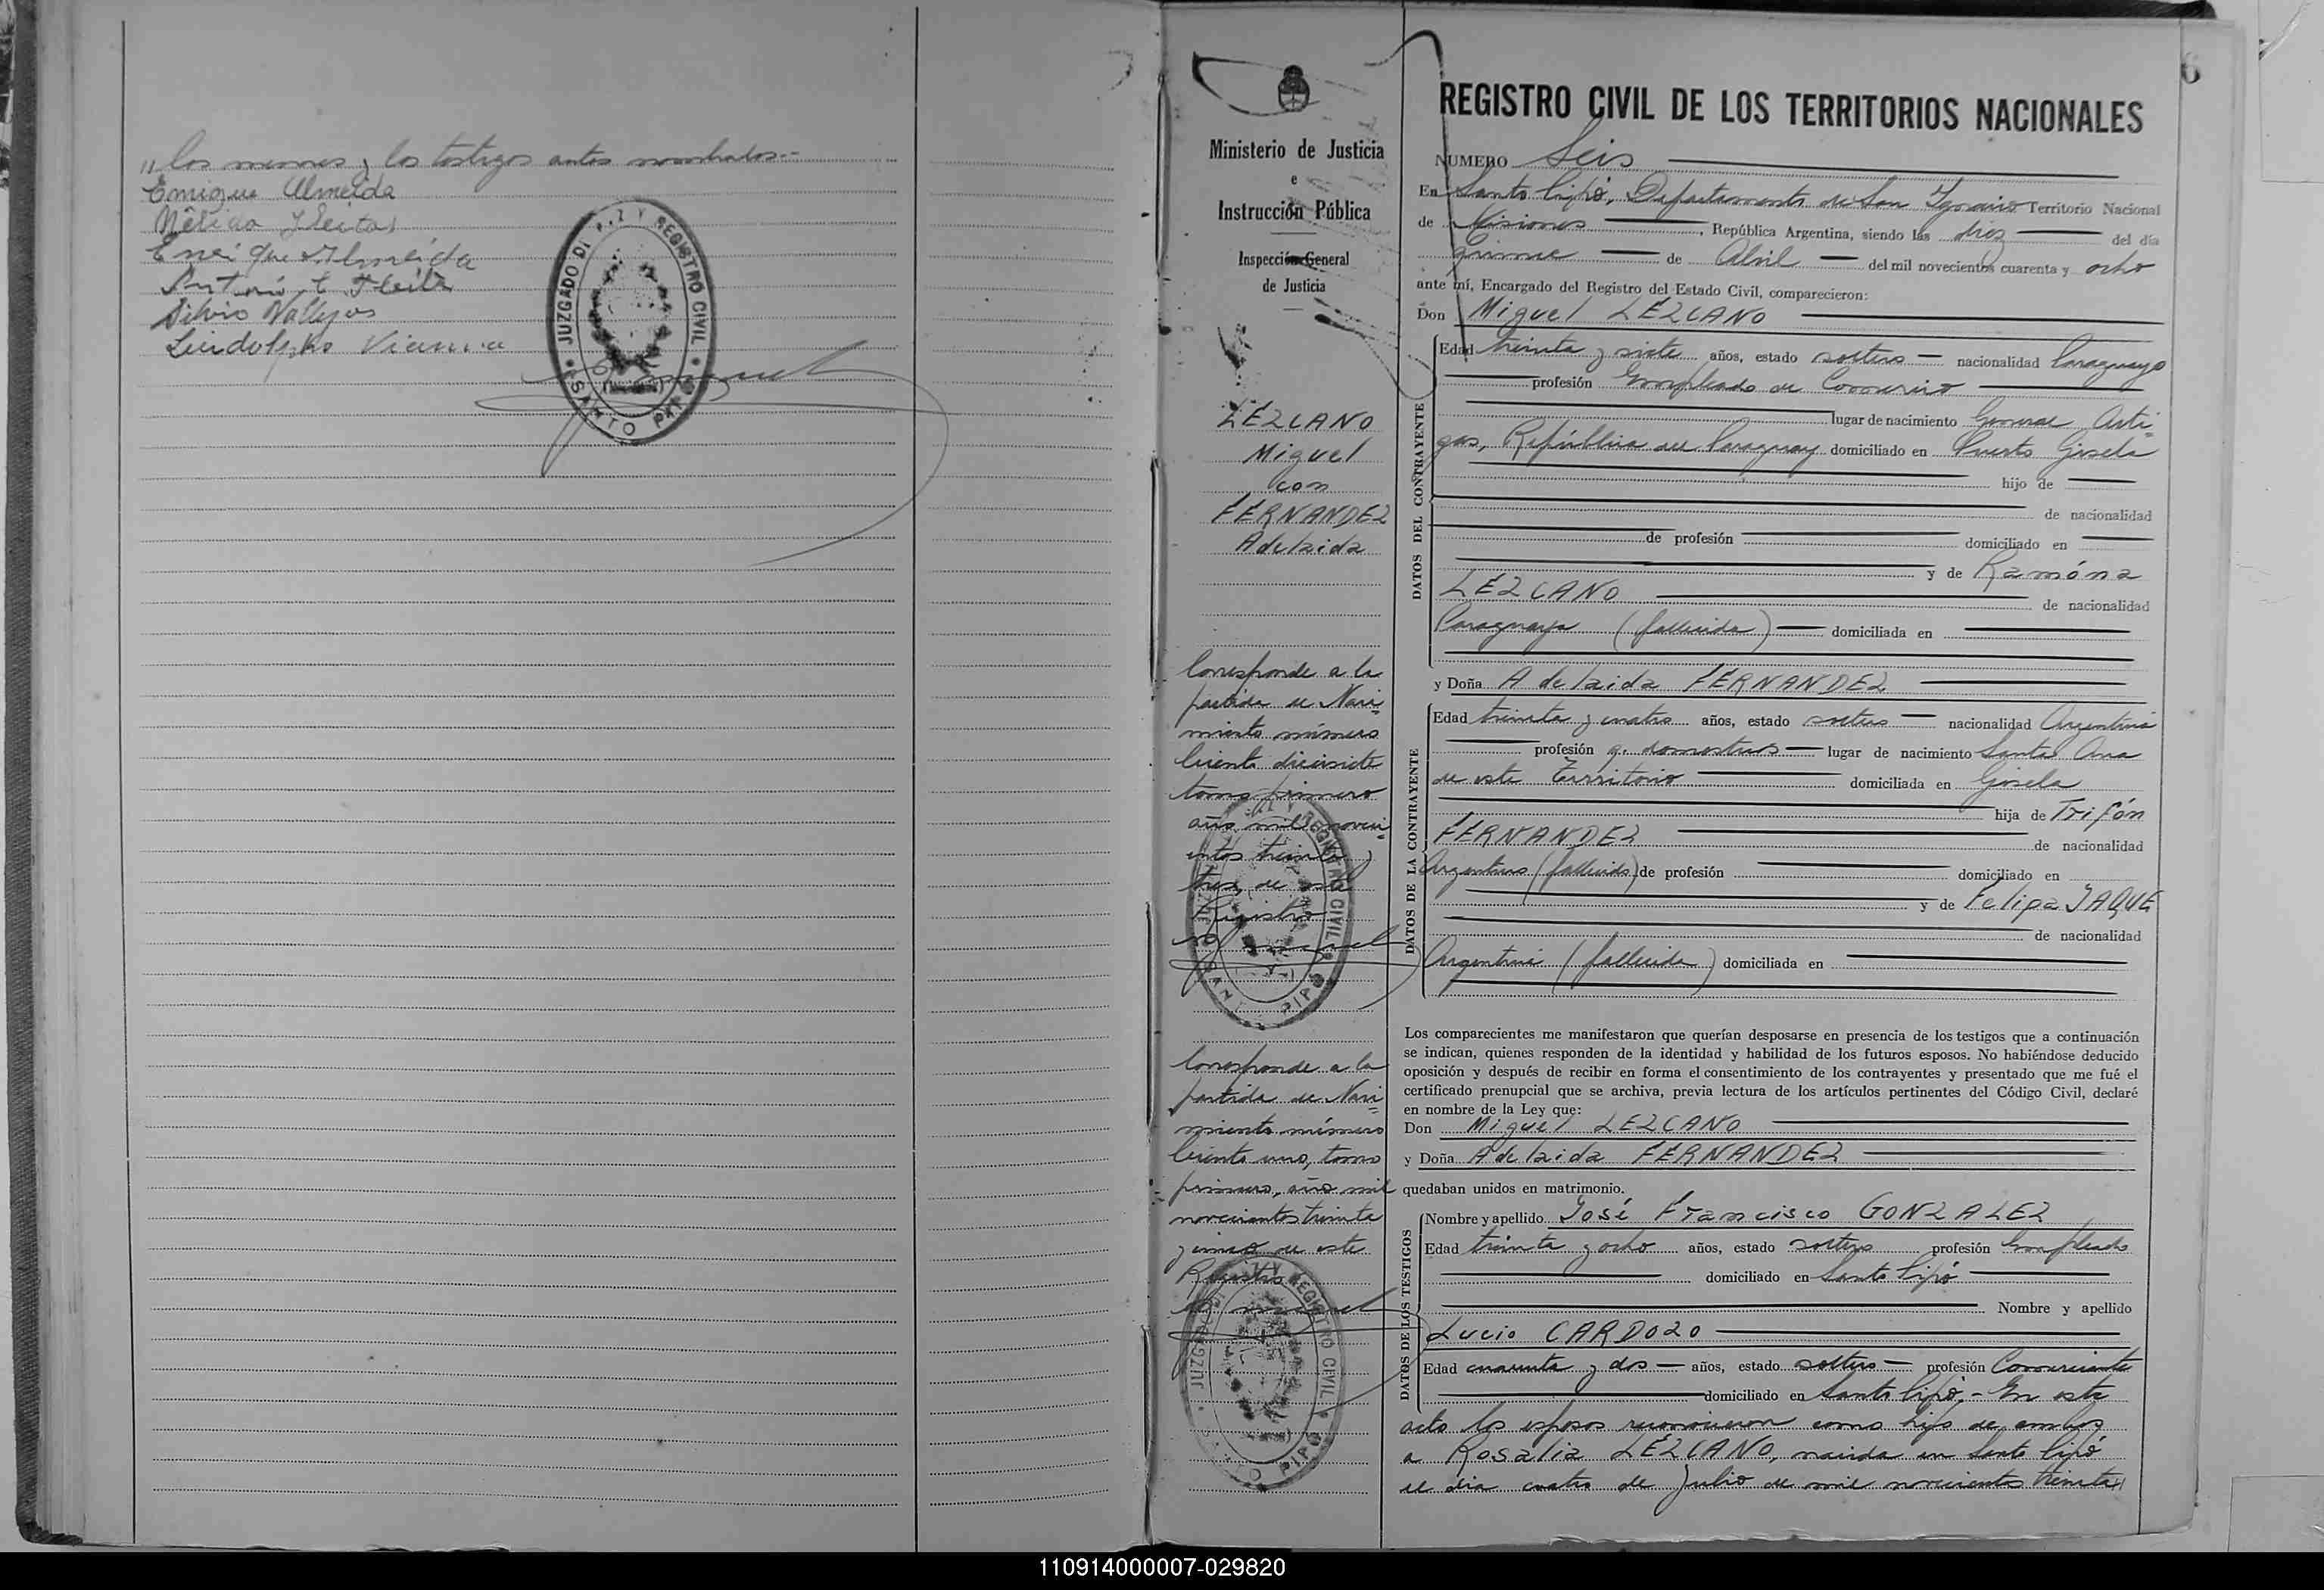 „ los menores y los testigos antes nombrados.-
Enrique Almeida
Nélida Fleitas
Enrique Almeida
Antonio Fleita
Silvio Vallejos
Lindolpho Vianna
JUZGADO DE PAZ Y REGISTRO CIVIL
SANTO PIPÓ
Ministerio de Justicia
e
Instrucción Pública
Inspección General
de Justicia
LEZCANO
Miguel
con
FERNANDEZ
Adelaida
Corresponde a la
partida de Naci-
miento número
ciento diecisiete
tomo primero
año mil noveci-
entos treinta y
tres, de este
Registro
JUZGADO DE PAZ Y REGISTRO CIVIL
SANTO PIPÓ
Corresponde a la
partida de Naci-
miento número
ciento uno, tomo
primero, año mil
novecientos treinta
y cinco de este
Registro
JUZGADO DE PAZ Y REGISTRO CIVIL
SANTO PIPÓ
6
REGISTRO CIVIL DE LOS TERRITORIOS NACIONALES
NUMERO Seis
En Santo Pipó, Departamento de San Ignacio Territorio Nacional
de Misiones, República Argentina, siendo las diez del día
quince de Abril del mil novecientos cuarenta y ocho
ante mí, Encargado del Registro del Estado Civil, comparecieron:
Don Miguel LEZCANO
DATOS DEL CONTRAYENTE
Edad treinta y siete años, estado soltero nacionalidad Paraguayo
profesión Empleado de Comercio
lugar de nacimiento General Arti-
gas, República del Paraguay domiciliado en Puerto Gisela
hijo de
de nacionalidad
de profesión domiciliado en
y de Ramóna
LEZCANO de nacionalidad
Paraguaya (fallecida) domiciliada en
y Doña Adelaida FERNANDEZ
DATOS DE LA CONTRAYENTE
Edad treinta y cuatro años, estado soltera nacionalidad Argentina
profesión q. domesticos lugar de nacimiento Santa Ana
de este Territorio domiciliada en Gisela
hija de Trifón
FERNANDEZ de nacionalidad
Argentino (fallecido) de profesión domiciliado en
y de Felipa JAQUE
de nacionalidad
Argentina (fallecida) domiciliada en
Los comparecientes me manifestaron que querían desposarse en presencia de los testigos que a continuación
se indican, quienes responden de la identidad y habilidad de los futuros esposos. No habiéndose deducido
oposición y después de recibir en forma el consentimiento de los contrayentes y presentado que me fué el
certificado prenupcial que se archiva, previa lectura de los artículos pertinentes del Código Civil, declaré
en nombre de la Ley que:
Don Miguel LEZCANO
y Doña Adelaida FERNANDEZ
quedaban unidos en matrimonio.
DATOS DE LOS TESTIGOS
Nombre y apellido José Francisco GONZALEZ
Edad treinta y ocho años, estado soltero profesión Empleado
domiciliado en Santo Pipó
Nombre y apellido
Lucio CARDOZO
Edad cuarenta y dos años, estado soltero profesión Comerciante
domiciliado en Santo Pipó.- En este
acto los esposos reconocieron como hijo de ambos
a Rosalia LEZCANO, nacida en Santo Pipó
el día cuatro de Julio de mil novecientos treinta
110914000007-029820